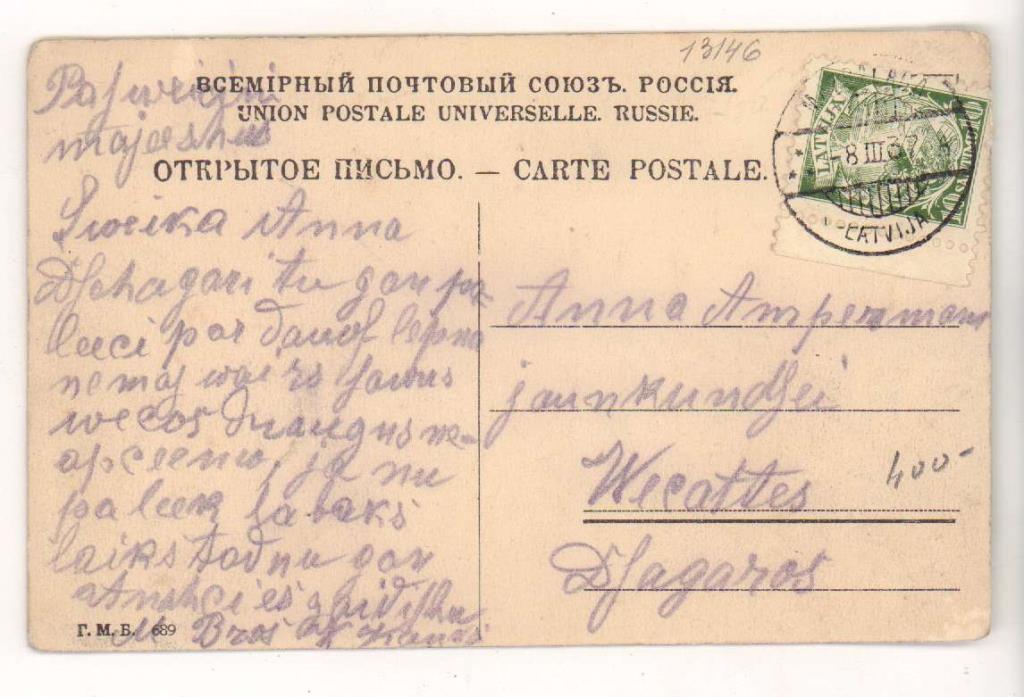 13146
ВСЕМІРНЫЙ ПОЧТОВЫЙ СОЮЗЪ. РОССІЯ.
UNION POSTALE UNIVERSELLE. RUSSIE.
ОТКРЫТОЕ ПИСЬМО. — CARTE POSTALE.
LATVIJA
-8 III 37
LATVIJA
Sweika Anna
tu gan pa-
leeci par lepna
nemaj wairs sawus
wecos draugus ne-
apceemo, ja nu
paleek labaks
laiks tad nu gan
atnahci es gaidishu
M Bros
Anna Ampermann
jaunkundsei
Wecattes
Dsagaros
400-
Г. М. Б. 689